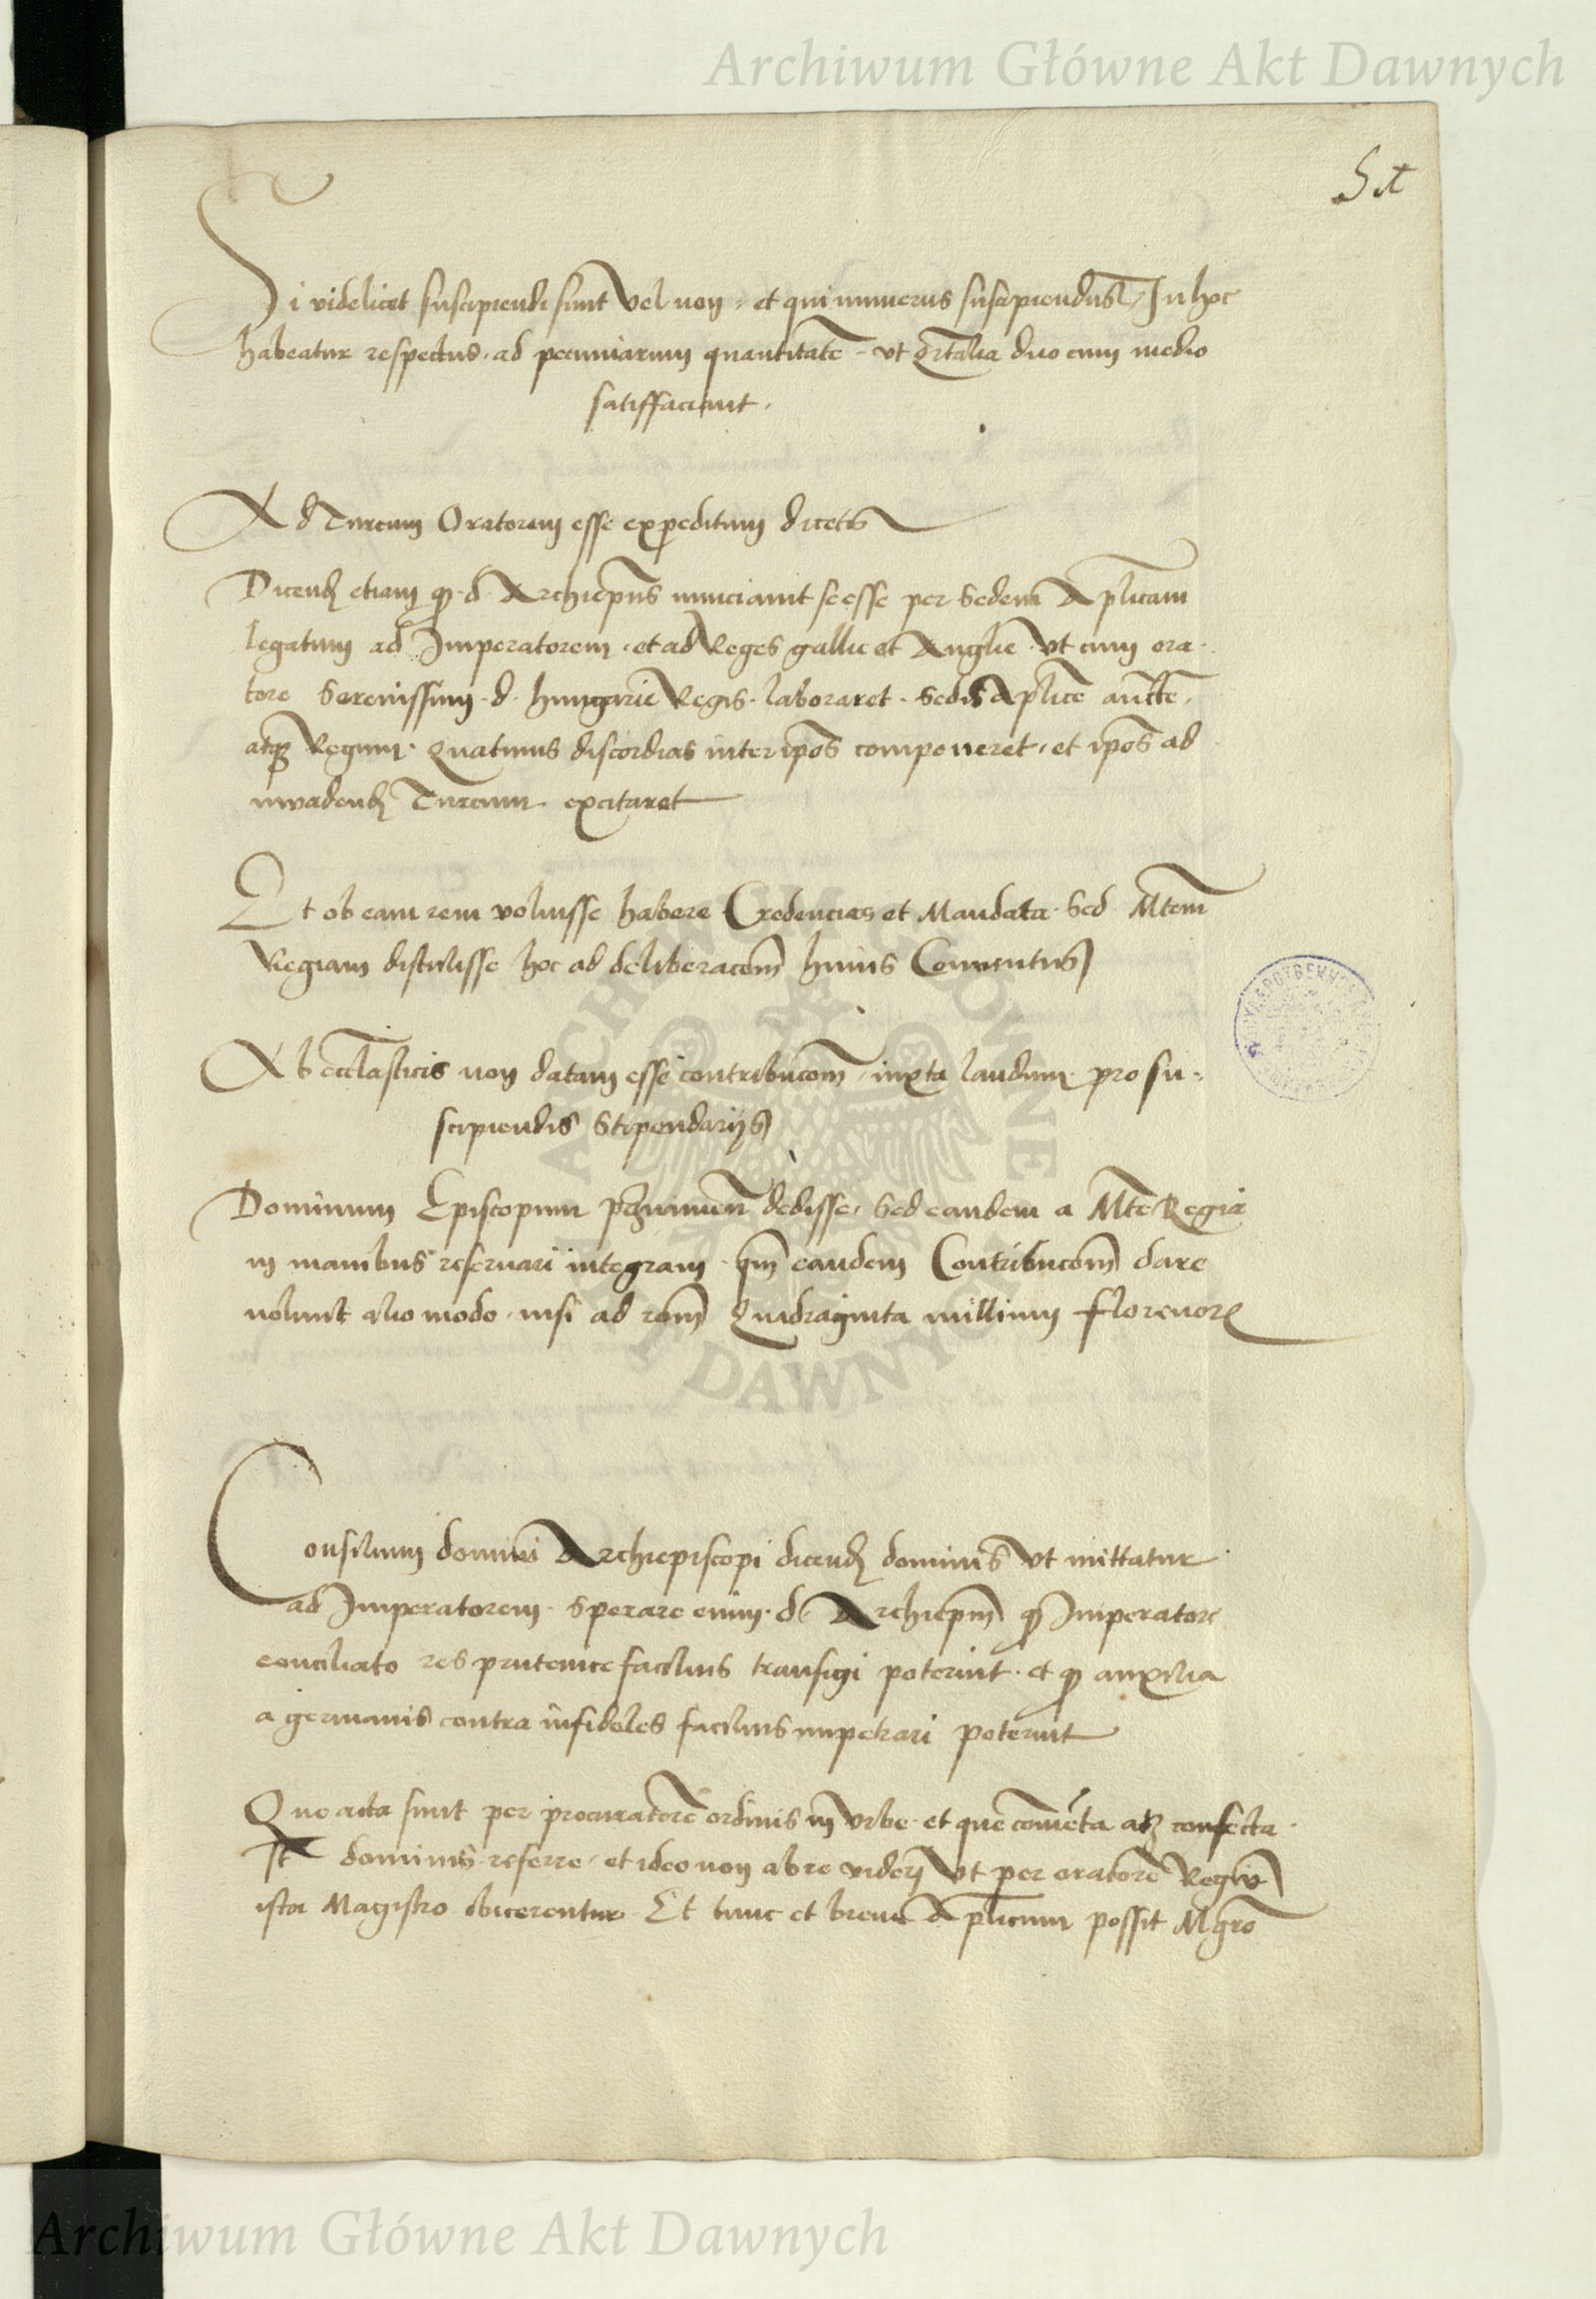 Archiwum Główne Akt Dawnych
Si videlicet suscipiendi sunt vel non et qui numerus suscipiendus In hoc
habeatur respectus ad pecuniarum quantitatē ut qrtalia duo cum medio
satisfaciant
Ad Turcum Oratorem esse expeditum dicetis
Dicend etiam q d Archiepūs nunciavit se esse per Sedem Aplicam
legatum ad Imperatorem et ad Reges gallie et Anglie ut cum ora
tore Serenissim d hungarie Regis laboraret Sedis Aplice aucte
atq Regum quatinus discordias inter ipōs componeret et ipōs ad
invadend Turcum excitaret
Et ob eam rem voluisse habere Credencias et Mandata Sed Mtem
Regiam distulisse hoc ad deliberacōm huius Conventus
Ab ecclasticis non datam esse contribucōm iuxta laudum pro su
scipiendis Stipendariis
Dominum Episcopum dedisse Sed eandem a Mte Regia
in manibus reservari integram qm eandem Contribucōm dare
nolunt alio modo nisi ad rōm Quadraginta millium florenor
Consilium domini Archiepiscopi dicend dominis ut mittatur
ad Imperatorem Sperare enim d Archiepm q Imperatore
conciliato res prutenice facilius transigi poterint et q auxilia
a germanis contra infideles facilius impetrari poterint
Que acta sunt per procuratorē ordinis in Urbe et que convēta atq confecta
dominis referre et ideo non ab re videri ut per oratorē Regiū
ista Magistro obicerentur Et tunc et breve Aplicum possit Mgrō
ARCHIWUM GŁÓWNE AKT DAWNYCH
Archiwum Główne Akt Dawnych